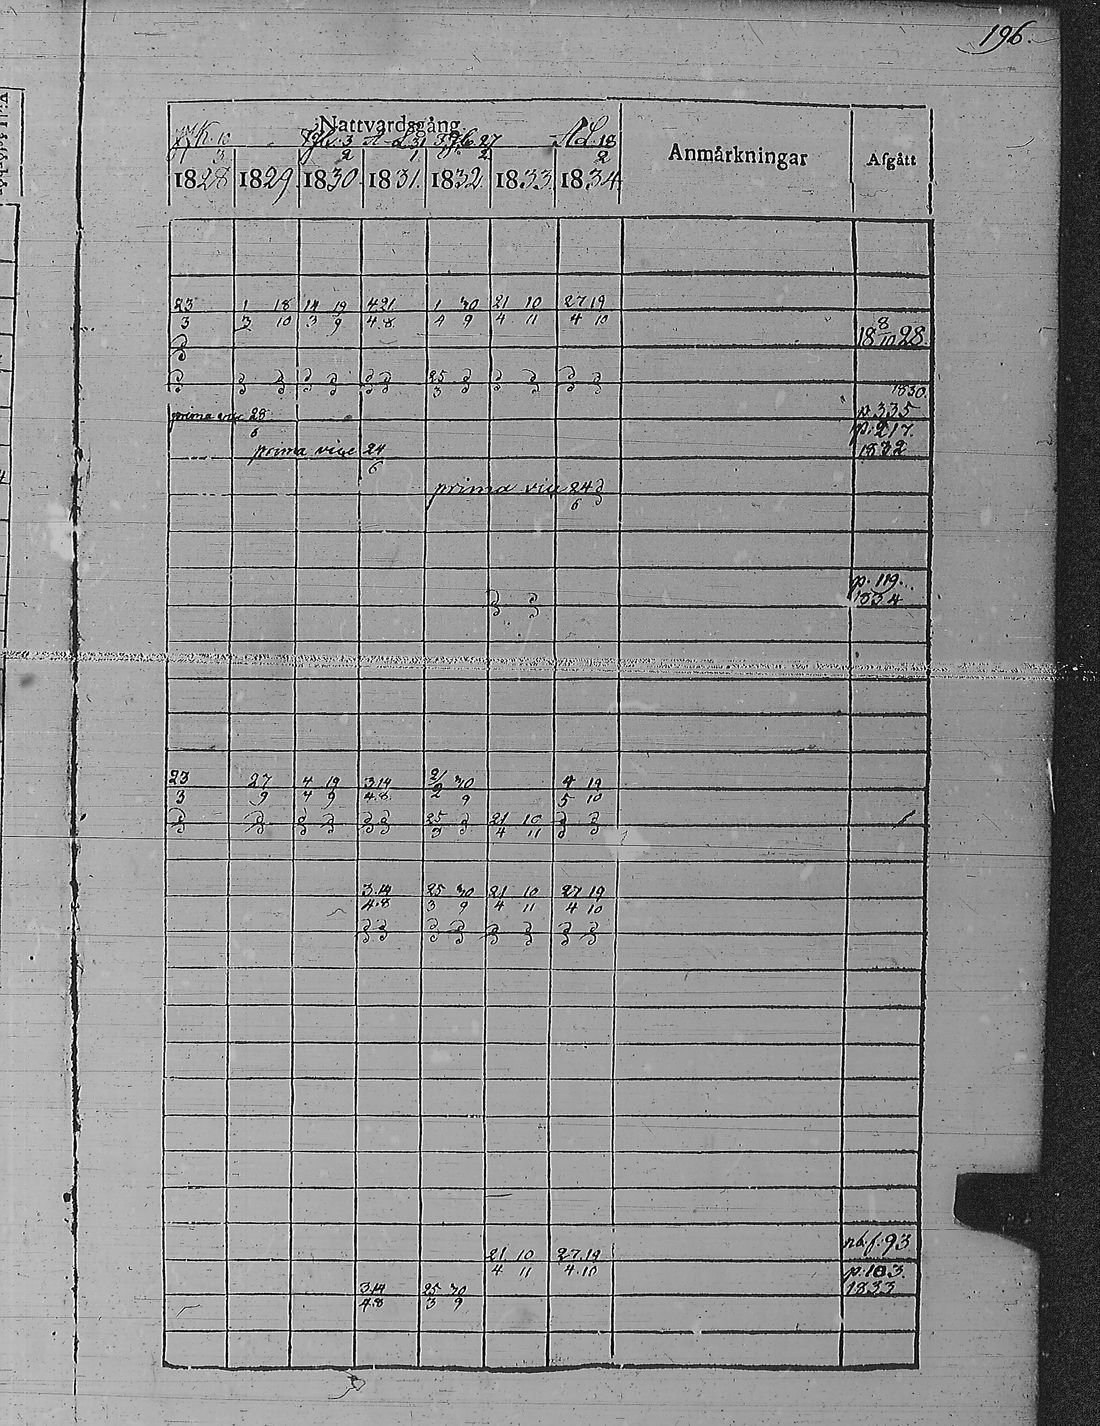 196.
Nattvardsgång
Anmärkningar Afgått
10 3 A L 31 27 A L 18
3 2 1 2 2
1828 1829. 1830. 1831. 1832. 1833. 1834
23 1 18 14 19 4 21 1 30 21 10 27 19
3 3 10 3 9 4.8. 4 9 4 11 4 10
8
18 10 28.
25
3
1830.
prima vice 28 p. 335
6 p. 217.
prima vice 24 1832
6
prima vice 24
6
p. 119.
1834
23 27 4 19 3.14 2/2 30 4 19
3 9 4 9 4.8. 9 5 10
25 21 10
3 4 11
3.14 25 30 21 10 27 19
4.8 3 9 4 11 4 10
f. 93
21 10 27.19
4 11 4.10 p. 103.
3.14 25 30 1833
4.8 3 9